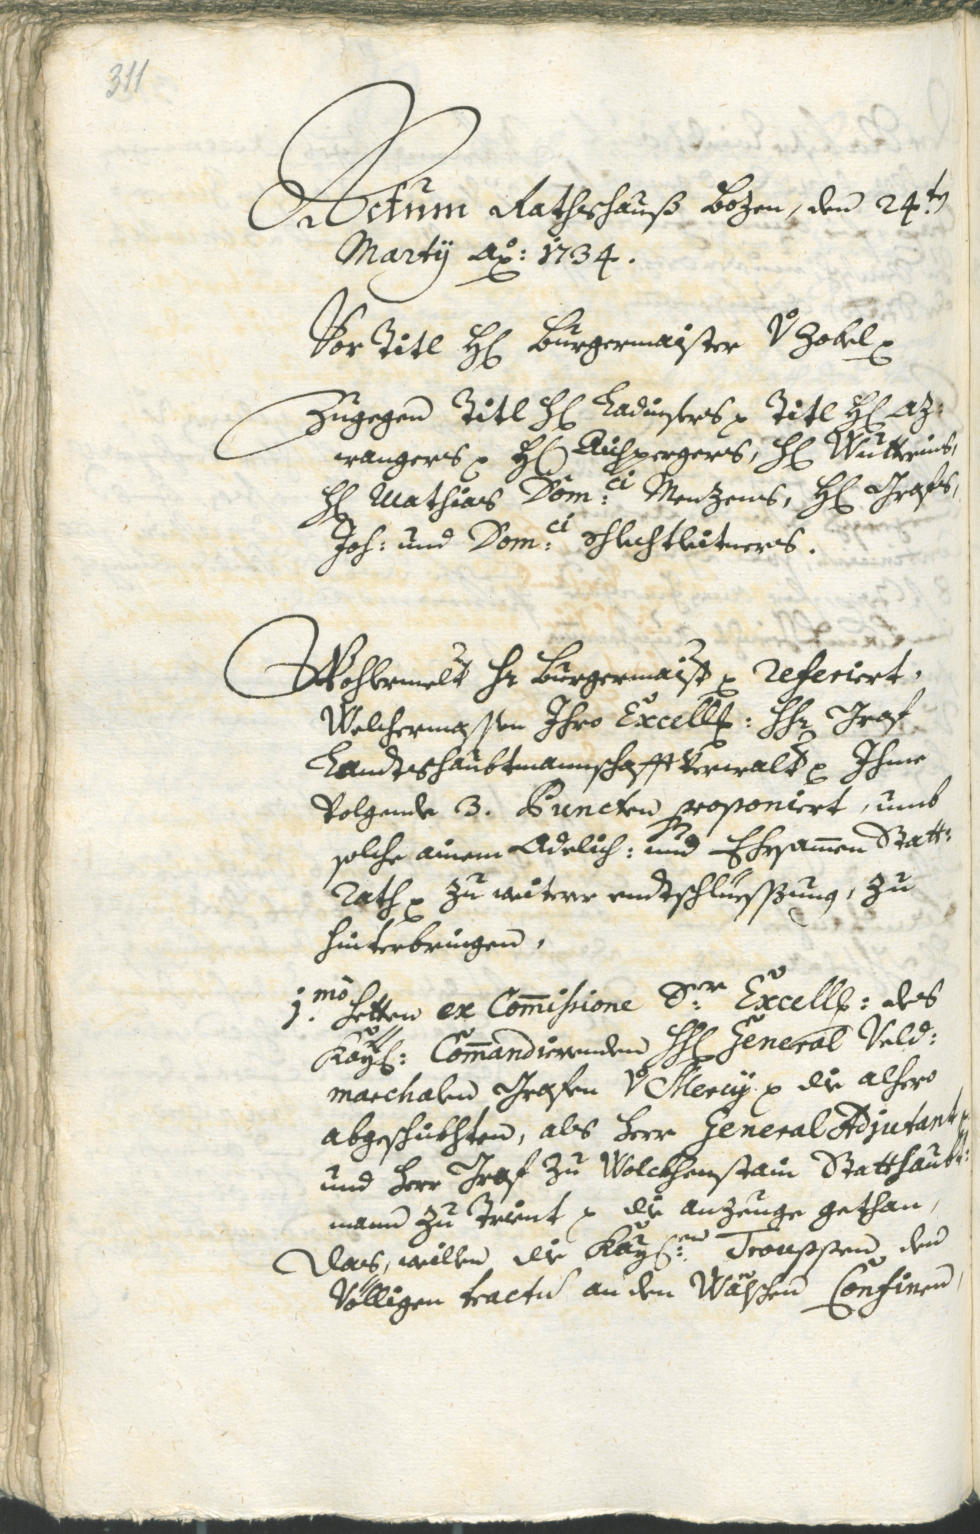 311
Actum Rathshauß Bozen, den 24ten
Martÿ Ao: 1734.
Vor Titl H: Burgermaister V Zobel p
Zugegen Titl H: Ladursers p Titl H: Az:
wangers p H: Aichpergers, H: Wutterins,
H: Mathias Dom:ci Menzens, H: Grafs,
Joh: und Dom:ci Schlechtleitners.
Wohlermelt Hr Burgermaistr p referiert,
Welchermassen Ihro Excellz: Hr Graf
Landtshaubtmannschafft Verwaltr p Ihme
Volgende 3. Puncten proponiert, umb
solche ainem Adelich: und Ehrsamen Statt:
Rath p zu weiterer endtschluessung, zu
hinterbringen,
1.mo hetten ex Commissione Sr Excellz: des
Kayl: Commandierenden H: General Veld:
marchalen Grafen V Mercÿ p die alhero
abgeschickhten, als Herr General Adjutant p
und Herr Graf zu Wolckhenstain Statthaubt:
mann zu Trient p die anzeuge gethan,
das, weillen die Kayl:en Trouppen den
Völligen tractu an den Wälschen Confinen,